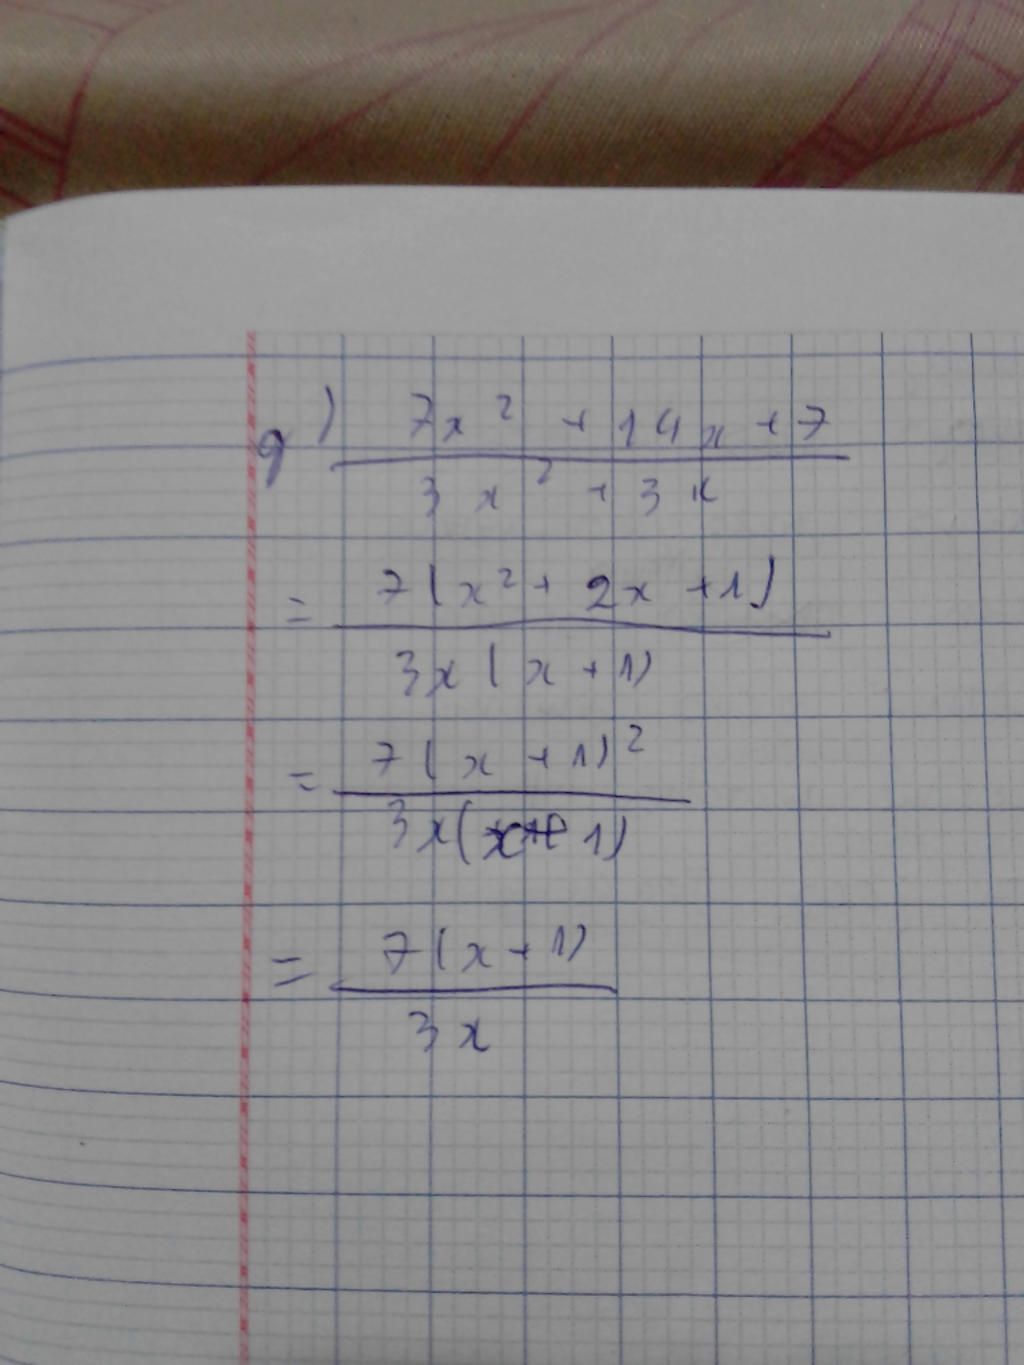 g) 7x² + 14x + 7
3x² + 3x
= 7(x² + 2x + 1)
3x(x + 1)
= 7(x + 1)²
3x(x+ 1)
= 7(x + 1)
3x